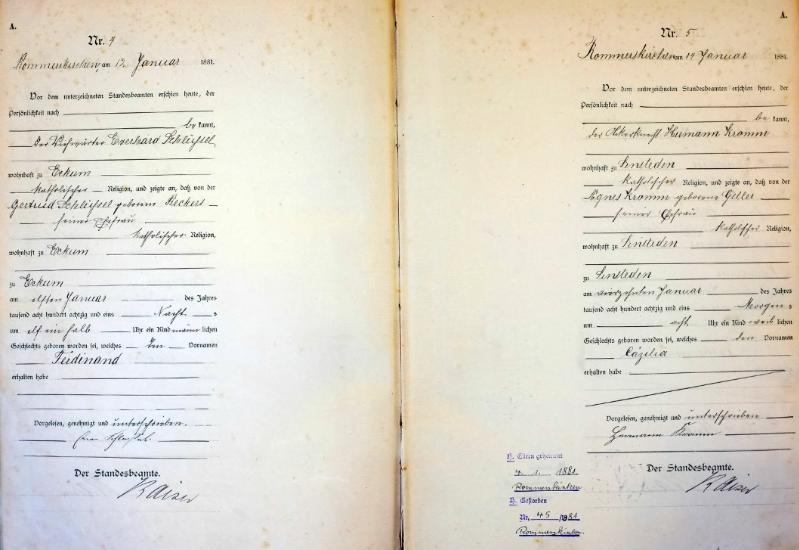 A.
Nr. 4
Rommerskirchen am 12 Januar 1881.
Vor dem unterzeichneten Standesbeamten erschien heute, der
Persönlichkeit nach
be kannt,
der Everhard Schlüssel
wohnhaft zu Eckum
katholischer Religion, und zeigte an, daß von der
Gertrud Schlüssel geborene Reckers
seiner Ehefrau
katholischer Religion,
wohnhaft zu Eckum
zu Eckum
am elften Januar des Jahres
tausend acht hundert achtzig und eins Nachts
um elf ein halb Uhr ein Kind männlichen
Geschlechts geboren worden sei, welches den Vornamen
Ferdinand
erhalten habe
Vorgelesen, genehmigt und unterschrieben.
Der Standesbeamte.
Kaiser
A.
Nr. 5
Rommerskirchen am 14 Januar 1881.
Vor dem unterzeichneten Standesbeamten erschien heute, der
Persönlichkeit nach
be kannt,
der Ackerknecht Hermann Kromm
wohnhaft zu Sinsteden
katholischer Religion, und zeigte an, daß von der
Agnes Kromm geborene Geller
seiner Ehefrau
katholischer Religion,
wohnhaft zu Sinsteden
zu Sinsteden
am vierzehnten Januar des Jahres
tausend acht hundert achtzig und eins Morgens
um acht Uhr ein Kind weiblichen
Geschlechts geboren worden sei, welches den Vornamen
Cäzilia
erhalten habe
Vorgelesen, genehmigt und unterschrieben
Hermann Kromm
Der Standesbeamte.
Kaiser
1881
Rommerskirchen
Gestorben
Nr. 45 1981
Rommerskirchen